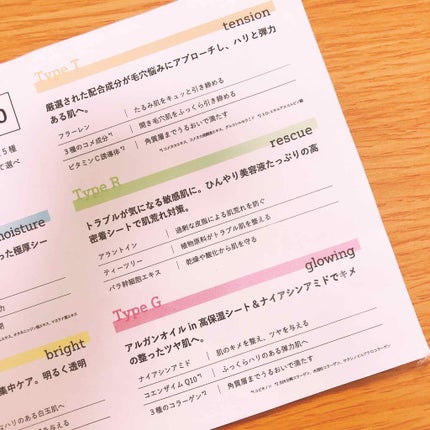 Type T
tension
厳選された配合成分が毛穴悩みにアプローチし、ハリと弾力
ある肌へ。
フラーレン
たるみ肌をキュッと引き締める
3種のコメ成分*1
開き毛穴肌をふっくら引き締める
ビタミンC誘導体*2
角質層までうるおいで満たす
Type R
rescue
トラブルが気になる敏感肌に。ひんやり美容液たっぷりの高
密着シートで肌荒れ対策。
アラントイン
過剰な皮脂による肌荒れを防ぐ
ティーツリー
植物原料がトラブル肌を整える
バラ幹細胞エキス
乾燥や酸化から肌を守る
Type G
glowing
アルガンオイル in 高保湿シート&ナイアシンアミドでキメ
の整ったツヤ肌へ。
ナイアシンアミド
肌のキメを整え、ツヤを与える
コエンザイム Q10*1
ふっくらハリのある弾力肌へ
3種のコラーゲン*2
角質層までうるおいで満たす
0
5種
て選べ
moisture
った極厚シー
bright
集中ケア。明るく透明
のある白玉肌へ
肌へ